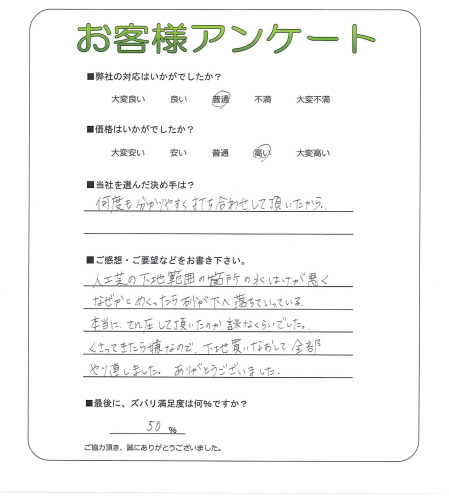 お客様アンケート
■弊社の対応はいかがでしたか？
大変良い 良い 普通 不満 大変不満
■価格はいかがでしたか？
大変安い 安い 普通 高い 大変高い
■当社を選んだ決め手は？
何度も分かりやすく打ち合わせして頂いたから。
■ご感想・ご要望などをお書き下さい。
人工芝の下地範囲の箇所の水はけが悪く
なぜかとめくったら砂が下へ落ちていっている。
本当に、てん圧して頂いたのか、謎なくらいでした。
くさってきたら嫌なので、下地買いなおして全部
やり直しました。ありがとうございました。
■最後に、ズバリ満足度は何％ですか？
50 %
ご協力頂き、誠にありがとうございました。